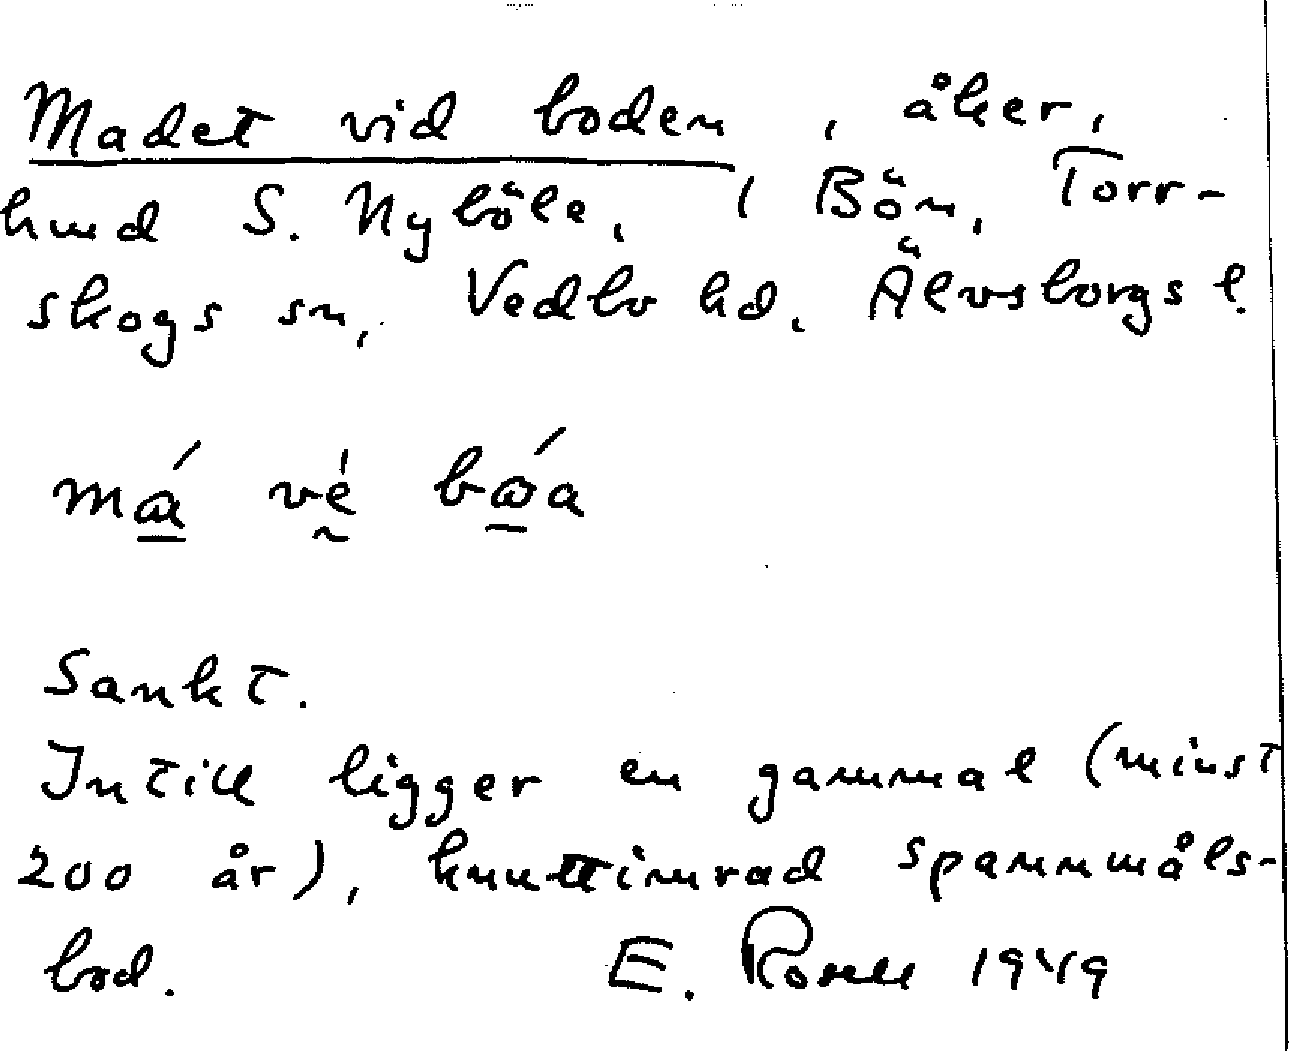 Madet vid boden, åker,
hmd S. Nyböle, 1 Bön, Torr-
skogs sn, Vedbo hd, Älvsborgs l.
má vè bǿa
Sankt.
Intill ligger en gammal (minst
200 år), knuttimrad spannmåls-
bod. E. Rosell 1949